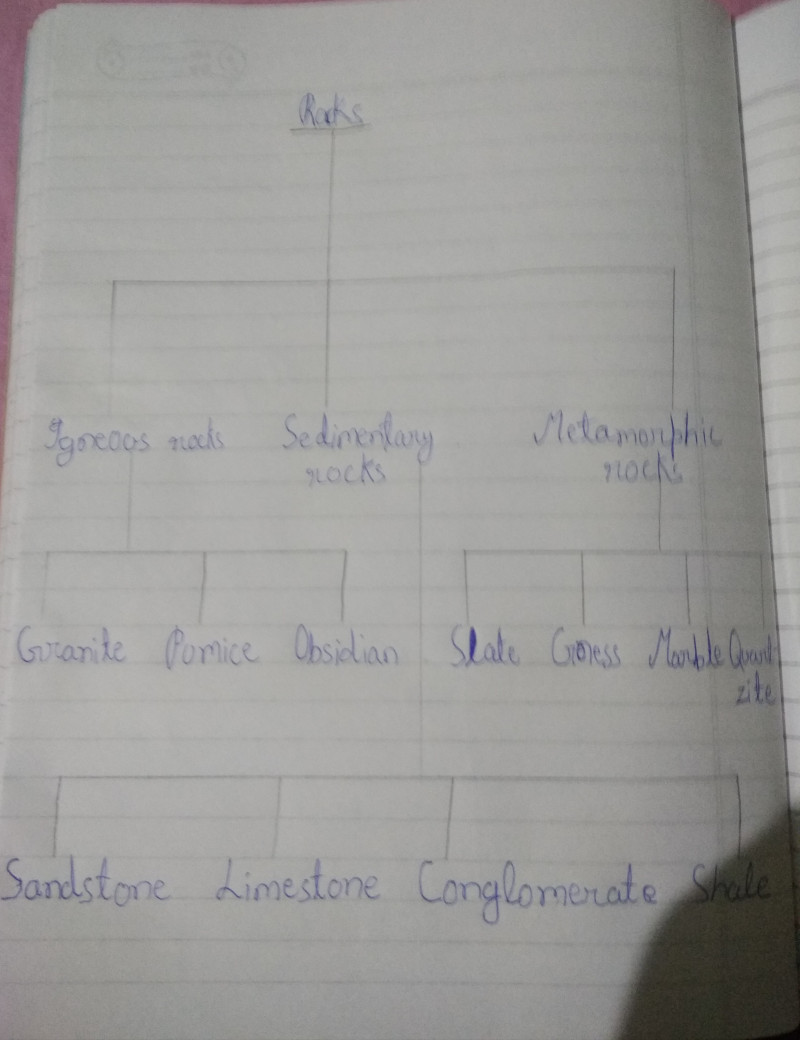 Rocks
Igneous rocks Sedimentary Metamorphic
rocks rocks
Granite Pumice Obsidian Slate Gneiss Marble Quart
zite
Sandstone Limestone Conglomerate Shale